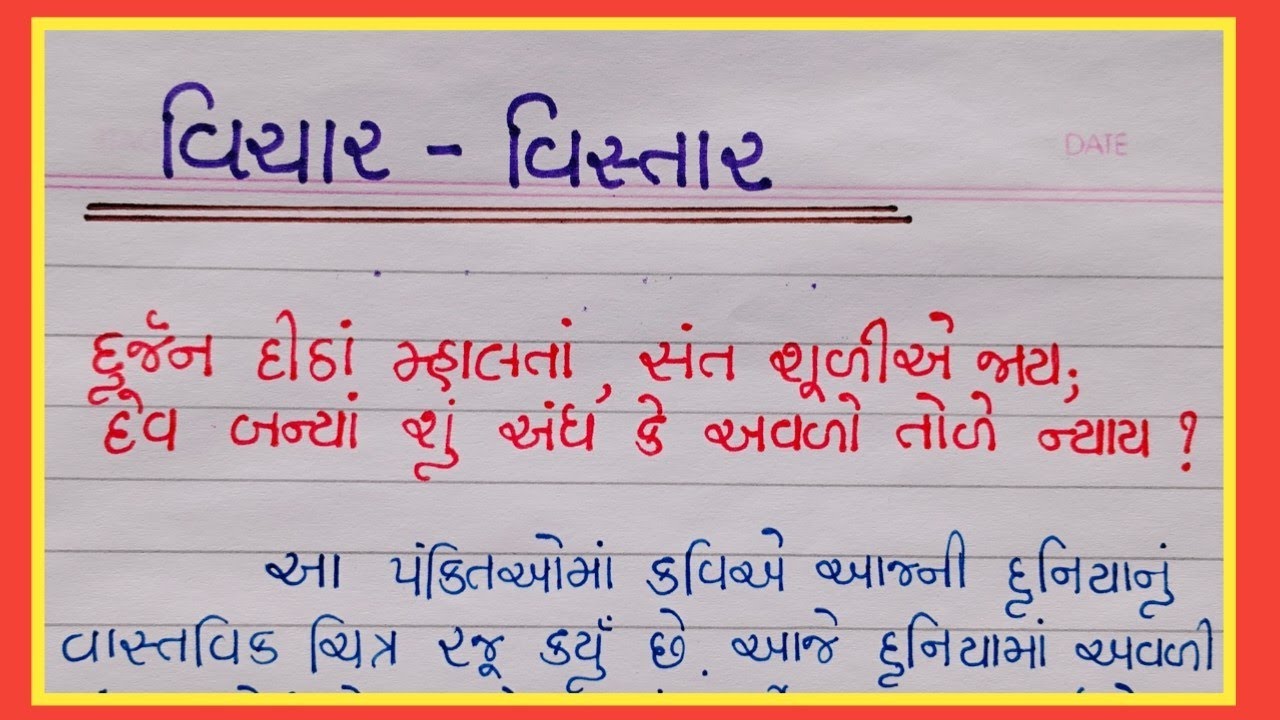 વિચાર - વિસ્તાર
DATE
દુર્જન દીઠાં મ્હાલતાં, સંત શૂળીએ જાય;
દેવ બન્યાં શું અંધ કે અવળો તોળે ન્યાય ?
આ પંક્તિઓમાં કવિએ આજની દુનિયાનું
વાસ્તવિક ચિત્ર રજૂ કર્યું છે. આજે દુનિયામાં અવળી